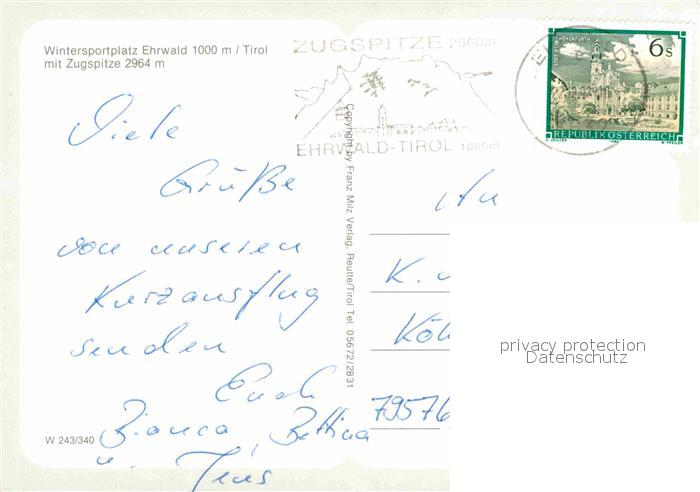 Wintersportplatz Ehrwald 1000 m / Tirol
mit Zugspitze 2964 m
ZUGSPITZE 2960m
EHRWALD-TIROL 1000m
6s
REPUBLIK ÖSTERREICH
Viele
Grüße
von unserem
Kurzausflug
senden
Euch
Bianca, Bettina
u. Jens
Copyright by Franz Milz Verlag, Reutte/Tirol Tel. 05672/2831
An
K. u
Köh
79576
privacy protection
Datenschutz
W 243/340